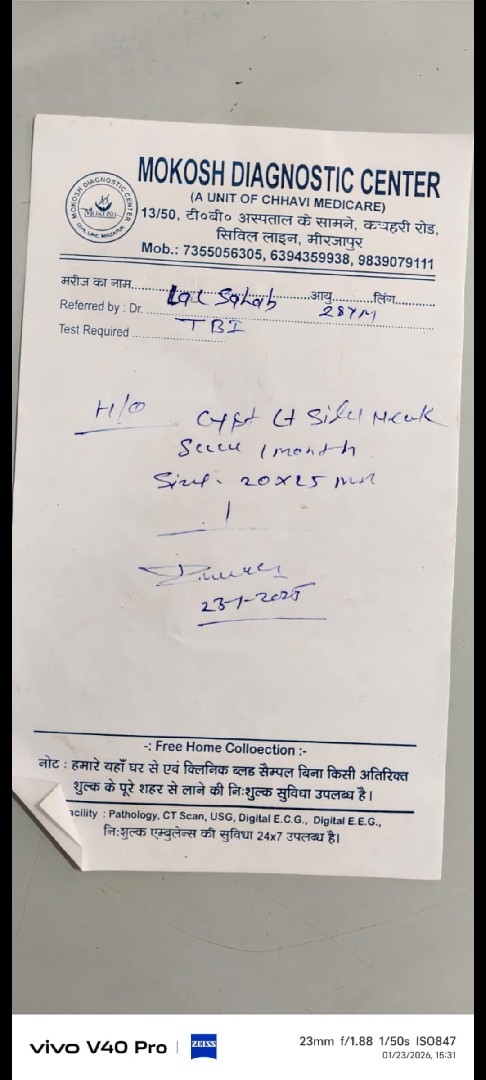 MOKOSH DIAGNOSTIC CENTER
(A UNIT OF CHHAVI MEDICARE)
13/50, टी०वी० अस्पताल के सामने, कचहरी रोड,
सिविल लाइन, मीरजापुर
Mob.: 7355056305, 6394359938, 9839079111
MOKOSH DIAGNOSTIC CENTER
MOKOSH
CIVIL LINE, MIRZAPUR
मरीज का नाम Lal Sahab आयु 28YM लिंग
Referred by : Dr. TBI
Test Required
H/O Cyst Lt Side Neck
Since 1 month
Size - 20x25 mm
23-1-2025
-: Free Home Colloection :-
नोट : हमारे यहाँ घर से एवं क्लिनिक ब्लड सैम्पल बिना किसी अतिरिक्त
शुल्क के पूरे शहर से लाने की निःशुल्क सुविधा उपलब्ध है।
acility : Pathology, CT Scan, USG, Digital E.C.G., Digital E.E.G.,
निःशुल्क एम्बुलेन्स की सुविधा 24x7 उपलब्ध है।
vivo V40 Pro | ZEISS
23mm f/1.88 1/50s ISO847
01/23/2026, 15:31